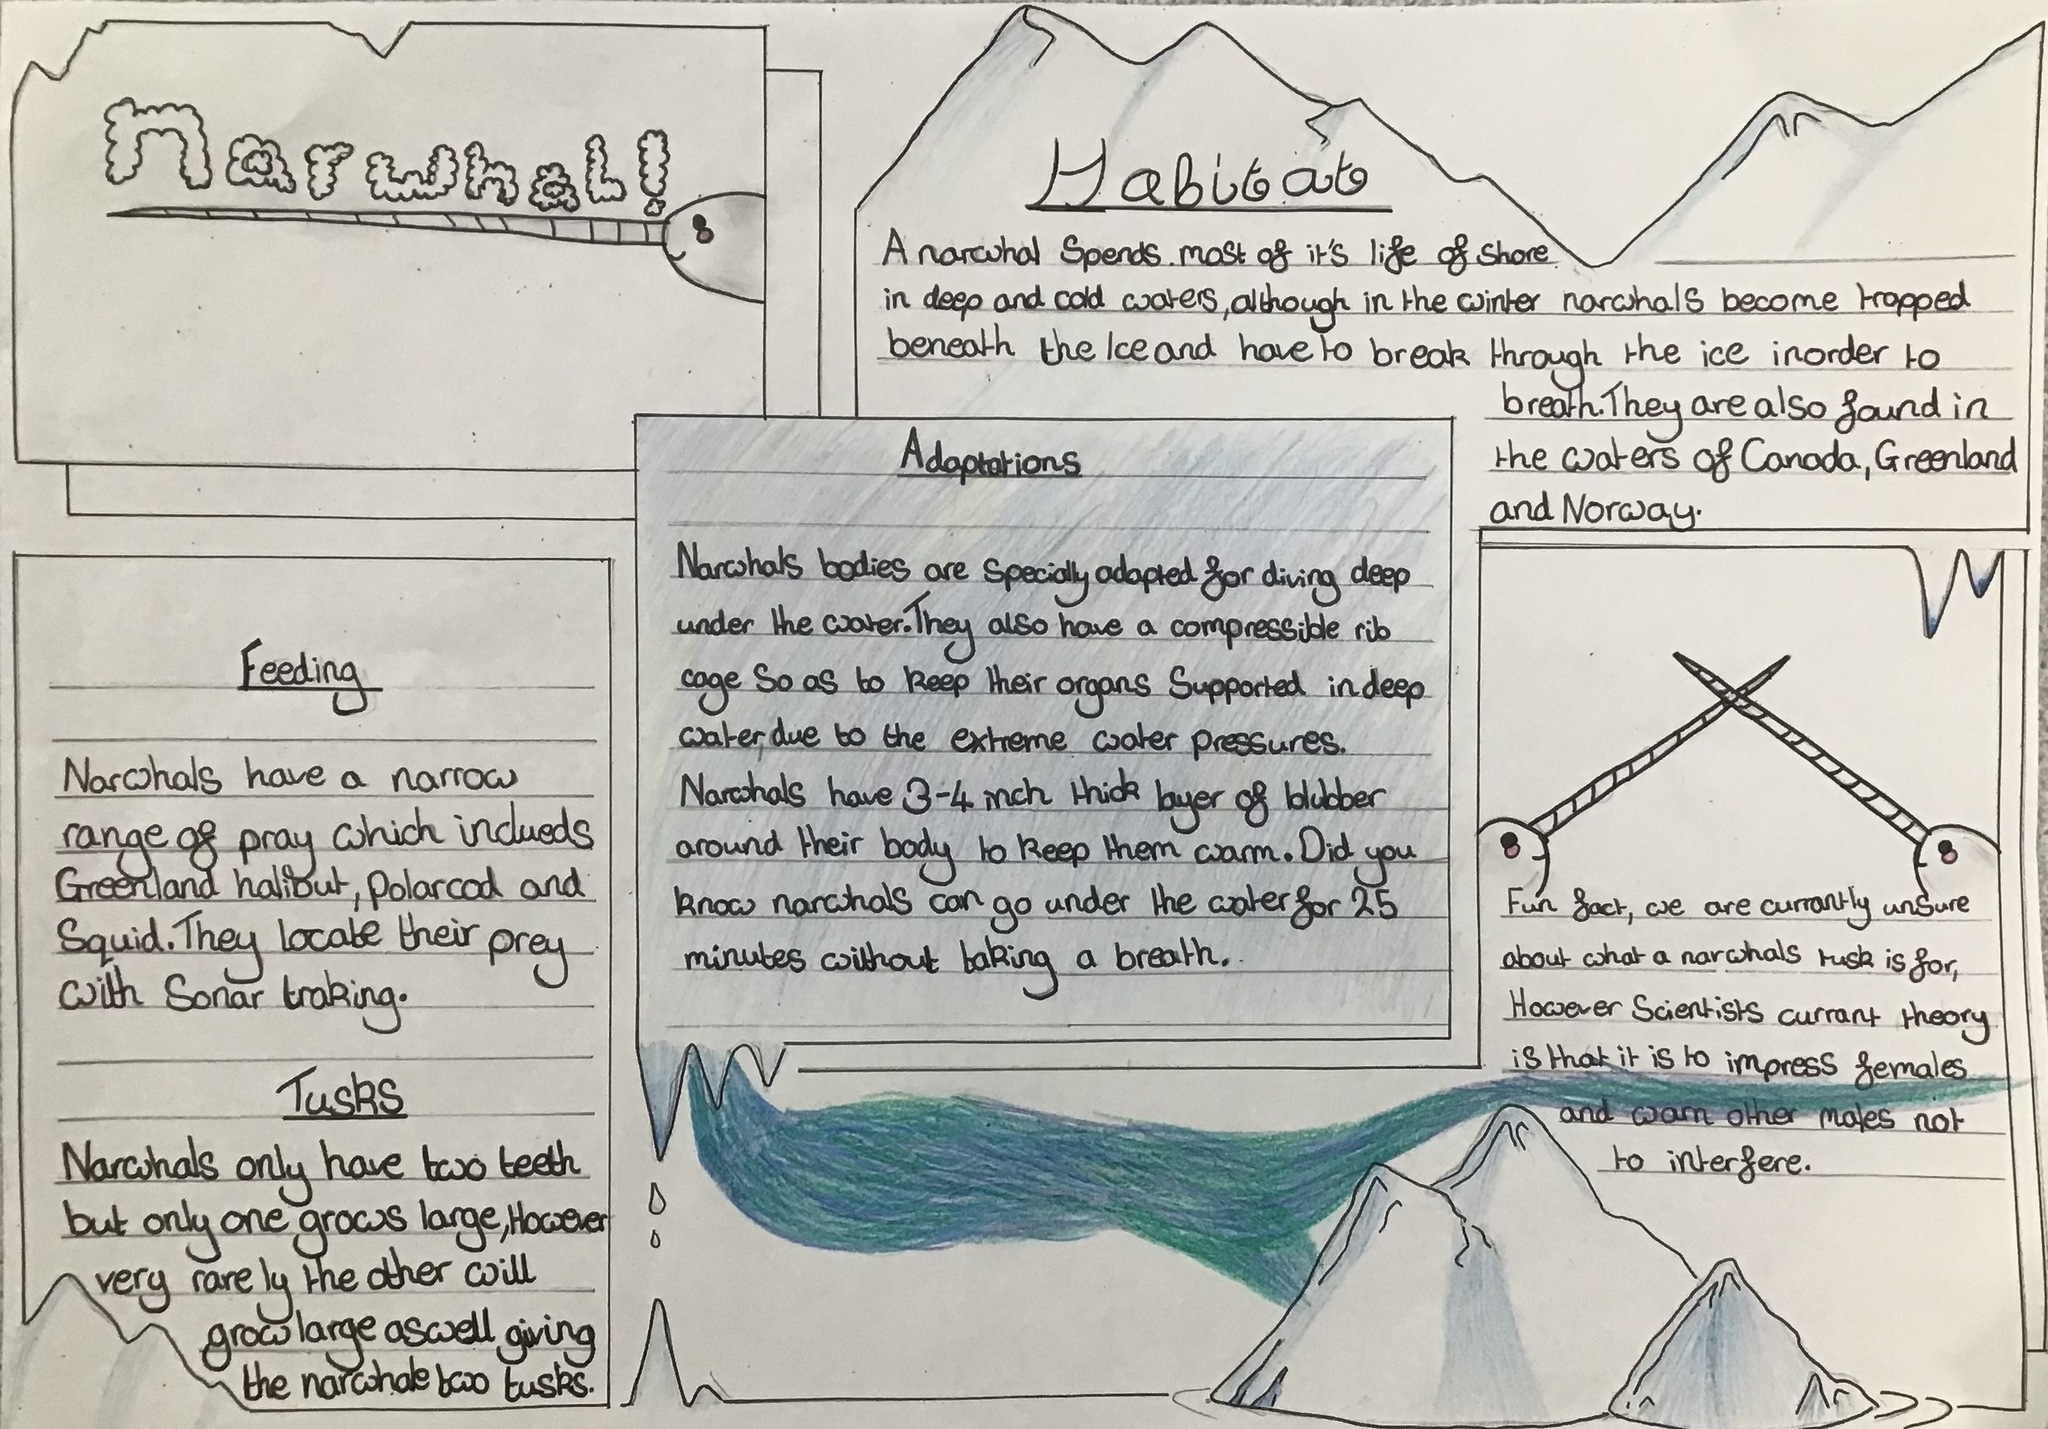 Narwhal!
Habitat
A narwhal Spends most of it's life of Shore
in deep and cold waters, although in the winter narwhals become trapped
beneath the Ice and have to break through the ice inorder to
breath. They are also found in
the waters of Canada, Greenland
and Norway.
Adaptations
Narwhals bodies are specially adapted for diving deep
under the water. They also have a compressible rib
cage So as to keep their organs Supported in deep
water, due to the extreme water pressures.
Narwhals have 3-4 inch thick layer of blubber
around their body to keep them warm. Did you
know narwhals can go under the water for 25
minutes without taking a breath.
Feeding
Narwhals have a narrow
range of pray which inclueds
Greenland halibut, Polarcod and
Squid. They locate their prey
with Sonar traking.
Tusks
Narwhals only have two teeth
but only one grows large, However
very rarely the other will
grow large aswell giving
the narwhale two tusks.
Fun fact, we are currantly unsure
about what a narwhals tusk is for,
However Scientists currant theory
is that it is to impress females
and warn other males not
to interfere.